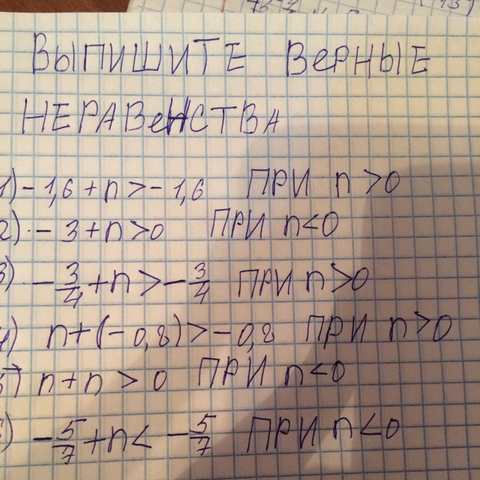 ВЫПИШИТЕ ВЕРНЫЕ
НЕРАВеНСТВА
1) -1,6+n>-1,6 ПРИ n>0
2) -3+n>0 ПРИ n<0
3) -3/4+n>-3/4 ПРИ n>0
4) n+(-0,8)>-0,8 ПРИ n>0
5) n+n>0 ПРИ n<0
6) -5/7+n<-5/7 ПРИ n<0